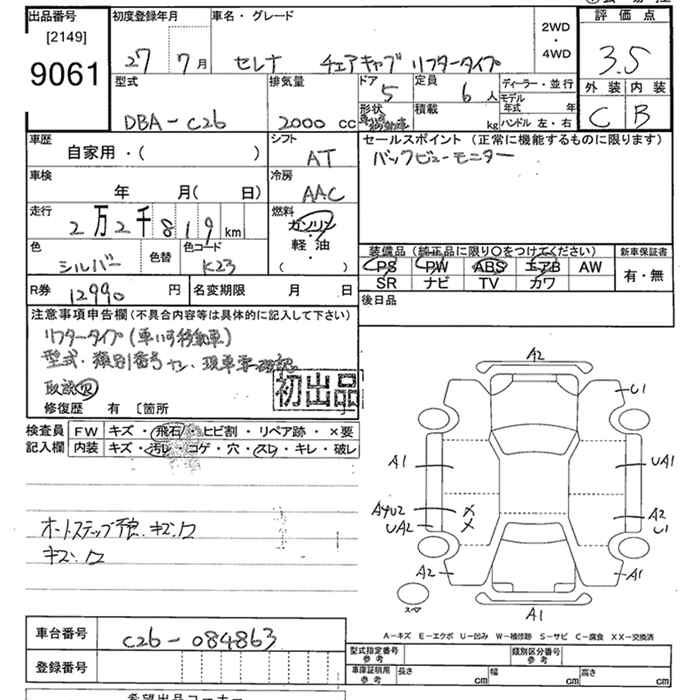 出品番号
[2149]
9061
初度登録年月
27年 7月
車名・グレード
セレナ チェアキャブ リフタータイプ
2WD
・
4WD
評価点
3.5
外装 内装
C B
型式
DBA-C26
排気量
2000 cc
ドア
5
形状
定員
6人
積載
kg
ディーラー・並行
モデル年式 年
ハンドル 左・右
車歴
自家用・( )
シフト
AT
セールスポイント(正常に機能するものに限ります)
バックビューモニター
車検
年 月( 日)
冷房
AAC
走行
2万2千819 km
燃料
ガソリン
・
軽油
( )
色
シルバー
色替
色コード
K23
装備品(純正品に限り○をつけてください)
PS PW ABS エアB AW
SR ナビ TV カワ
新車保証書
有・無
R券
12990円
名変期限 月 日
後日品
注意事項申告欄(不具合内容等は具体的に記入して下さい)
リフタータイプ(車いす移動車)
型式・類別番号ナシ・現車要確認
取説
初出品
修復歴 有 〔箇所 〕
検査員記入欄
FW キズ・飛石・ヒビ割・リペア跡・×要
内装 キズ・汚レ・コゲ・穴・スレ・キレ・破レ
オートステップ
キズ・凹
キズ・凹
A2
U1
A1
UA1
AYU2
UA2
A2
U1
A2
A1
A1
スペア
A-キズ E-エクボ U-凹み W-補修跡 S-サビ C-腐食 XX-交換済
車台番号
C26-084863
登録番号
型式指定番号 参考
類別区分番号 参考
車庫証明用 参考
長さ cm
幅 cm
高さ cm
希望出品コーナー